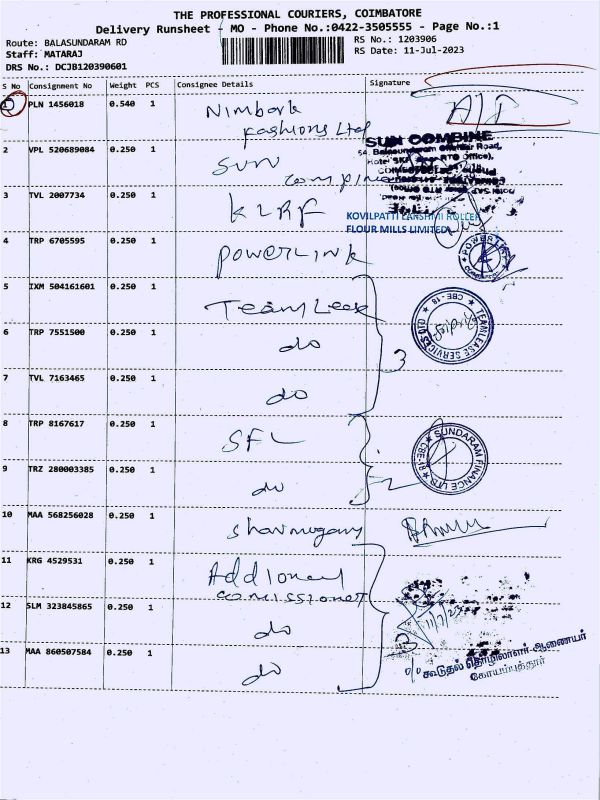 THE PROFESSIONAL COURIERS, COIMBATORE
Delivery Runsheet - MO - Phone No.:0422-3505555 - Page No.:1
Route: BALASUNDARAM RD
RS No.: 1203906
Staff: MATARAJ
RS Date: 11-Jul-2023
DRS No.: DCJB120390601
S No Consignment No Weight PCS Consignee Details Signature
1 PLN 1456018 0.540 1 Nimbark
Fashions Ltd
SUN COMBINE
2 VPL 520689084 0.250 1 SUN
3 TVL 2007734 0.250 1 KLRF
KOVILPATTI LAKSHMI ROLLER
FLOUR MILLS LIMITED
4 TRP 6705595 0.250 1 POWERLINK
POWER LINK
5 IXM 504161601 0.250 1 TeamLeek
TEAMLEASE SERVICES
CBE - 18
6 TRP 7551500 0.250 1 do
3
7 TVL 7163465 0.250 1 do
8 TRP 8167617 0.250 1 SFL
SUNDARAM FINANCE LTD
CBE-18
9 TRZ 280003385 0.250 1 do
2
10 MAA 568256028 0.250 1 Shanmugam
11 KRG 4529531 0.250 1 Addional
comissioner
12 SLM 323845865 0.250 1 do
11/7/23
3
13 MAA 860507584 0.250 1 do
கூடுதல் தொழிலாளர் ஆணையர்
கோயம்புத்தூர்